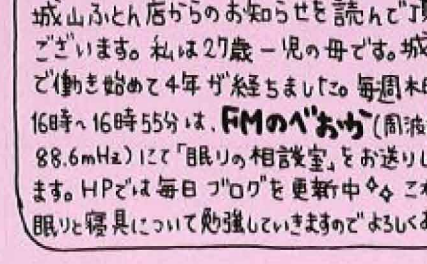 城山ふとん店からのお知らせを読んで頂
ございます。私は27歳一児の母です。城
で働き始めて4年が経ちました。毎週木
16時~16時55分は、FMのべおか(周波
88.6mHz)にて「眠りの相談室」をお送りし
ます。HPでは毎日ブログを更新中✧✧ これ
眠りと寝具について勉強していきますのでよろしくお